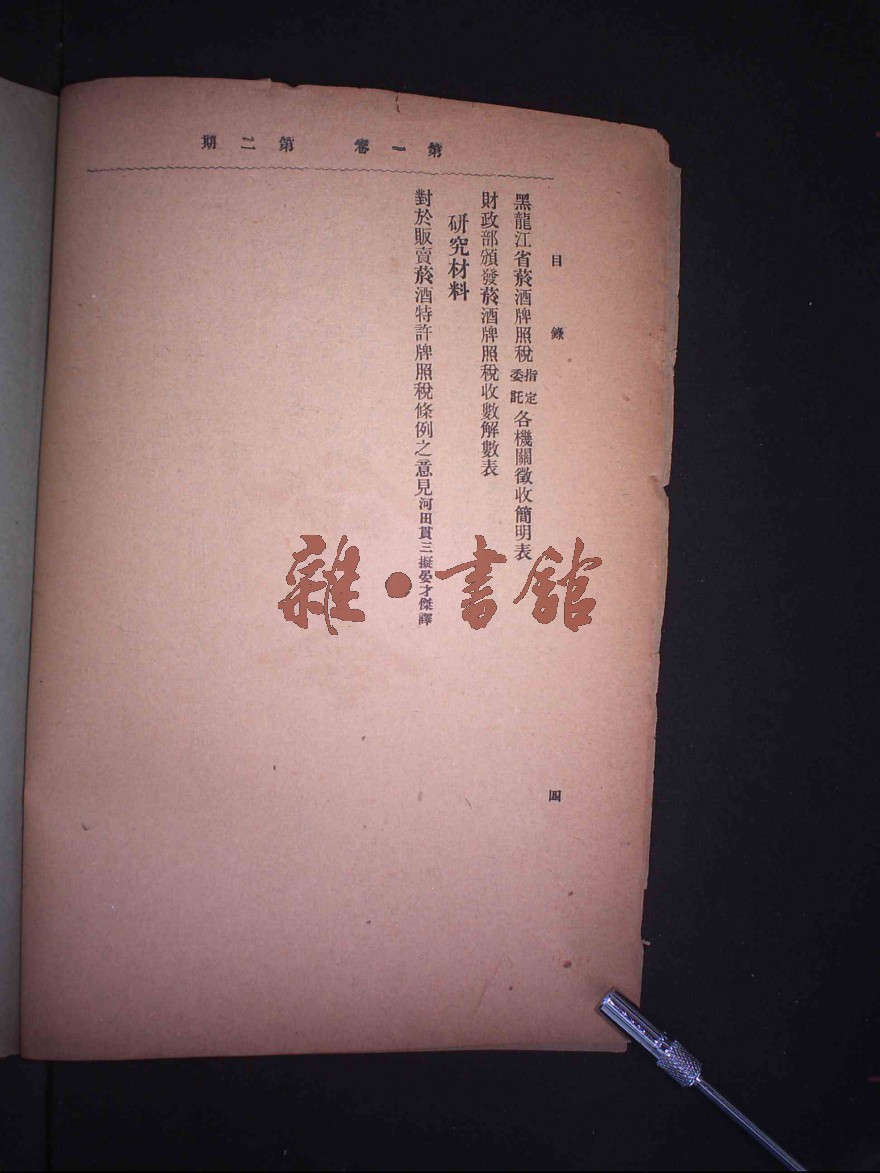 第一卷 第二期
目錄 四
黑龍江省菸酒牌照稅指定委託各機關徵收簡明表
財政部頒發菸酒牌照稅收數解數表
研究材料
對於販賣菸酒特許牌照稅條例之意見河田貫三擬晏才傑譯
雜·書館